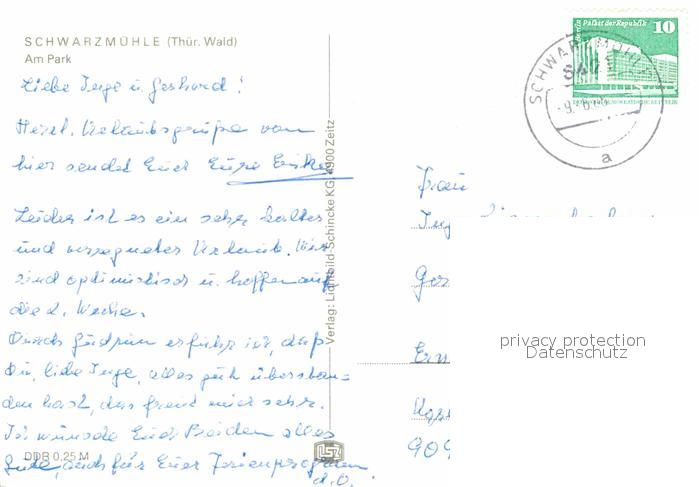 SCHWARZMÜHLE (Thür. Wald)
Am Park
Liebe Inge u. Gerhard!
Herzl. Urlaubsgrüße von
hier sendet Euch Eure
Leider ist es ein sehr kalter
und verregneter Urlaub. Wir
sind optimistisch u. hoffen auf
die 2. Woche.
Durch Gudrun erfuhr ich, daß
Du, liebe Inge, alles gut überstan=
den hast, das freut mich sehr.
Ich wünsche Euch Beiden alles
Gute, auch für Euer Ferienprogramm
d. O.
DDR 0,25 M
Verlag: Lichtbild-Schincke KG, 4900 Zeitz
Berlin Palast der Republik 10
DEUTSCHE DEMOKRATISCHE REPUBLIK
SCHWARZMÜHLE
a
Frau
privacy protection
Datenschutz